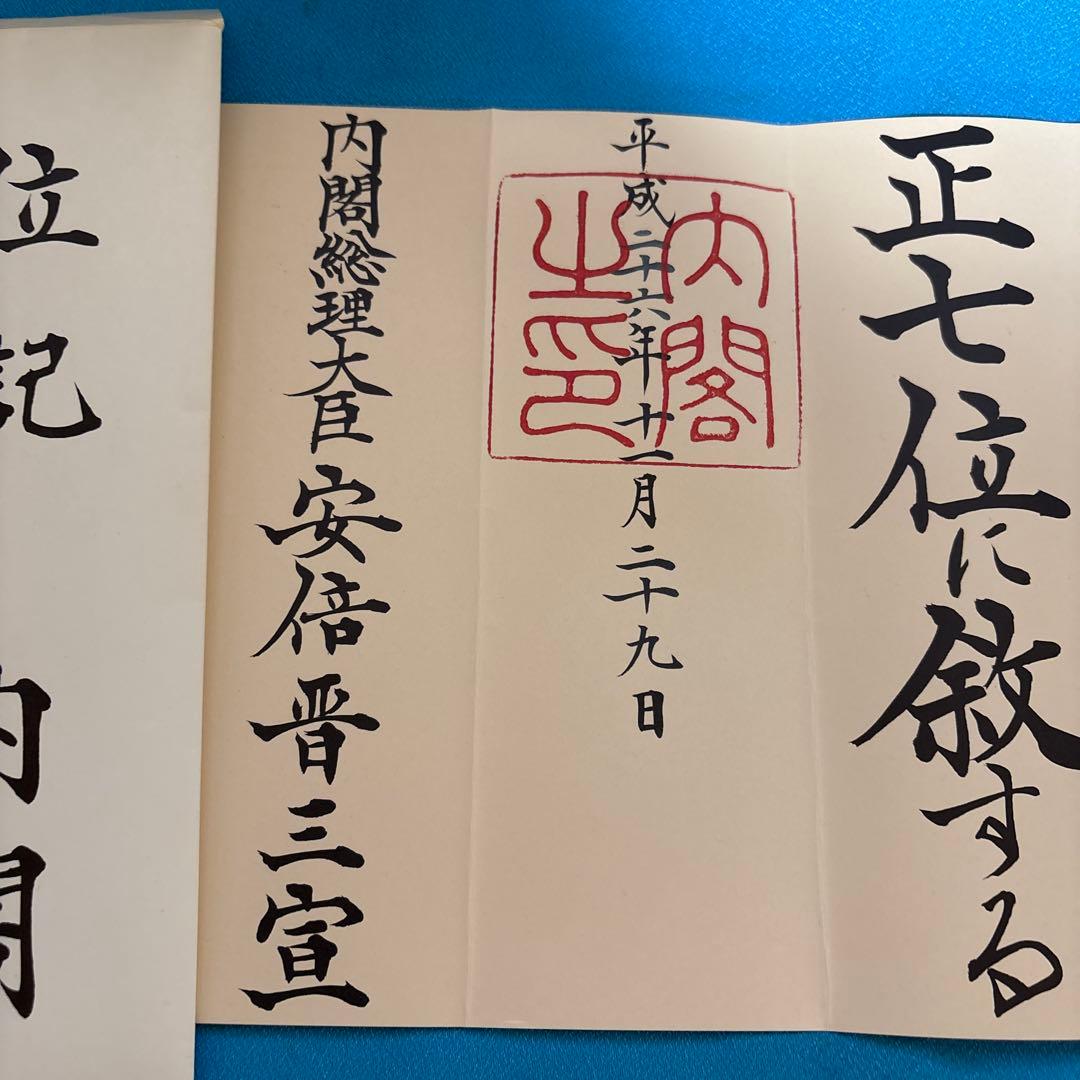 正七位に叙する
平成二十六年十一月二十九日
内閣之印
内閣総理大臣安倍晋三宣
位記
内閣